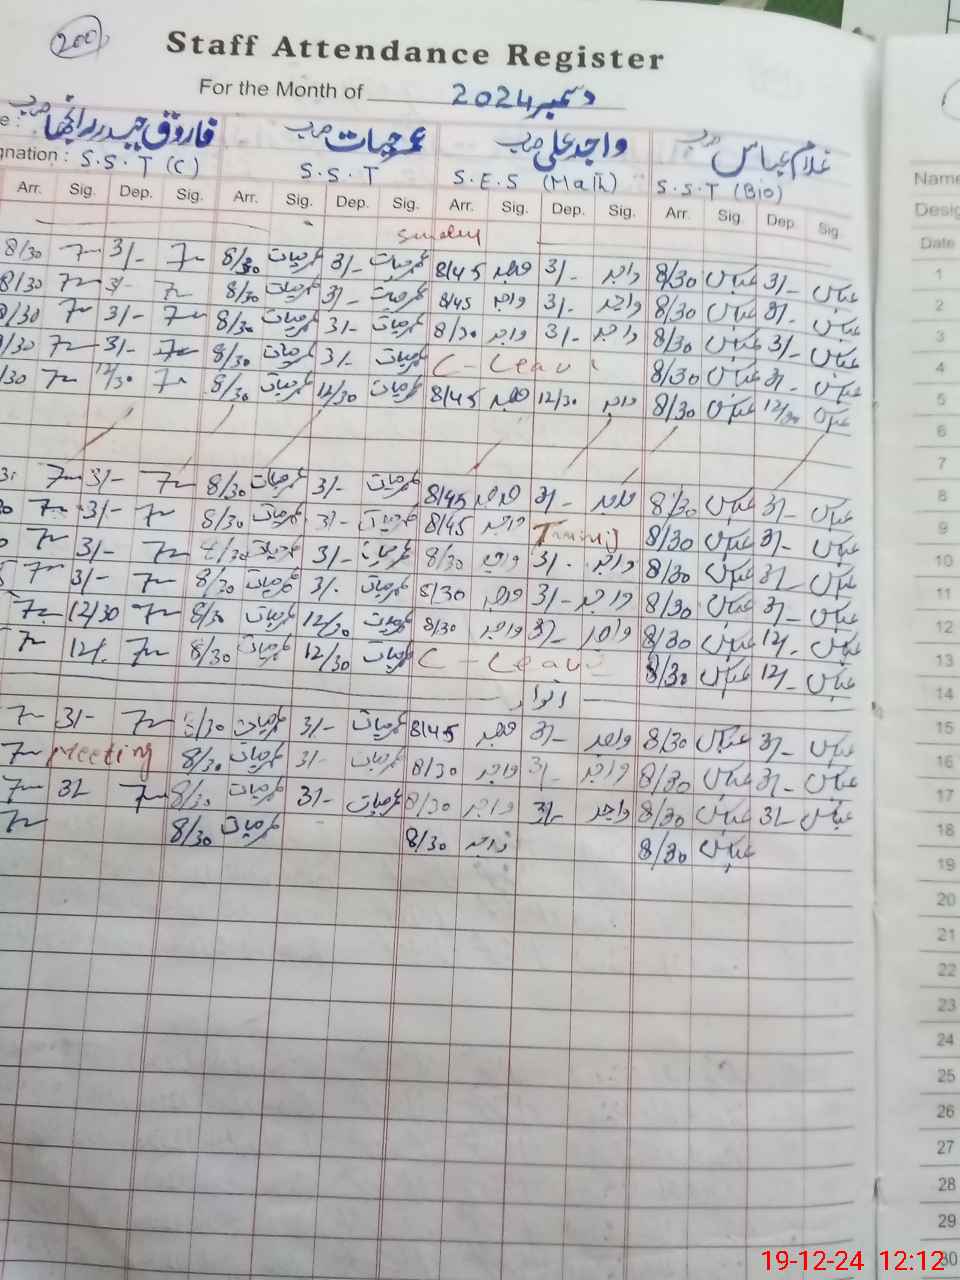 200
Staff Attendance Register
For the Month of دسمبر 2024
فاروق حیدر صاحب عمر حیات صاحب واجد علی صاحب غلام عباس صاحب
gnation : S.S.T (C) S.S.T S.E.S (Math) S.S.T (Bio)
Arr. Sig. Dep. Sig. Arr. Sig. Dep. Sig. Arr. Sig. Dep. Sig. Arr. Sig. Dep. Sig.
Sunday
8/30 3/- 8/30 عمرحیات 3/- عمرحیات 8/45 واجد 3/- واجد 8/30 عباس 3/- عباس
8/30 3/- 8/30 عمرحیات 3/- عمرحیات 8/45 واجد 3/- واجد 8/30 عباس 3/- عباس
8/30 3/- 8/30 عمرحیات 3/- عمرحیات 8/30 واجد 3/- واجد 8/30 عباس 3/- عباس
8/30 3/- 8/30 عمرحیات 3/- عمرحیات C-Leave 8/30 عباس 3/- عباس
/30 12/30 8/30 عمرحیات 12/30 عمرحیات 8/45 واجد 12/30 واجد 8/30 عباس 12/30 عباس
3/- 8/30 عمرحیات 3/- عمرحیات 8/45 واجد 3/- واجد 8/30 عباس 3/- عباس
3/- 8/30 عمرحیات 3/- عمرحیات 8/45 واجد Training 8/30 عباس 3/- عباس
3/- 8/30 عمرحیات 3/- عمرحیات 8/30 واجد 3/- واجد 8/30 عباس 3/- عباس
3/- 8/30 عمرحیات 3/- عمرحیات 8/30 واجد 3/- واجد 8/30 عباس 3/- عباس
12/30 8/30 عمرحیات 12/30 عمرحیات 8/30 واجد 3/- واجد 8/30 عباس 12/- عباس
12/- 8/30 عمرحیات 12/30 عمرحیات C-Leave 8/30 عباس 12/- عباس
اتوار
3/- 8/30 عمرحیات 3/- عمرحیات 8/45 واجد 3/- واجد 8/30 عباس 3/- عباس
Meeting 8/30 عمرحیات 3/- عمرحیات 8/30 واجد 3/- واجد 8/30 عباس 3/- عباس
3/- 8/30 عمرحیات 3/- عمرحیات 8/30 واجد 3/- واجد 8/30 عباس 3/- عباس
8/30 عمرحیات 8/30 واجد 8/30 عباس
Name
Desig
Date
1
2
3
4
5
6
7
8
9
10
11
12
13
14
15
16
17
18
19
20
21
22
23
24
25
26
27
28
29
30
19-12-24 12:12